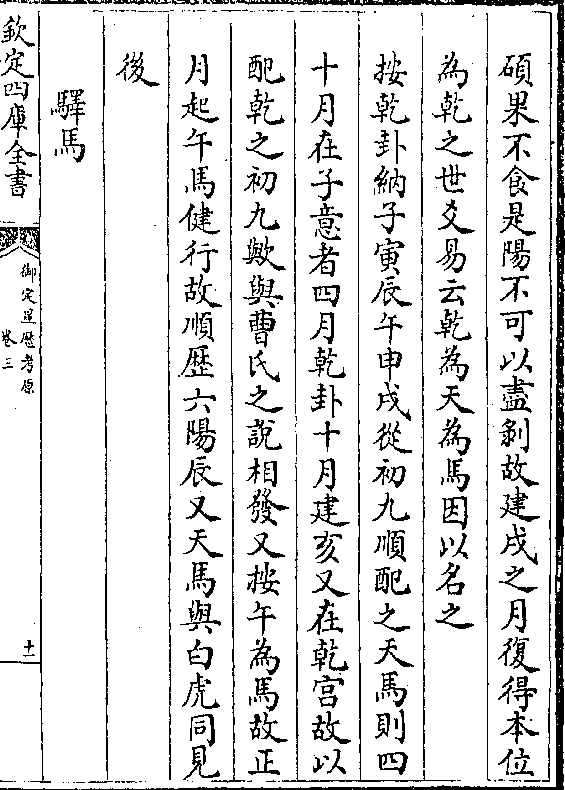 碩果不食是陽不可以盡剝故建戌之月復得本位
為乾之世爻易云乾為天為馬因以名之
按乾卦納子寅辰午申戌從初九順配之天馬則四
十月在子意者四月乾卦十月建亥又在乾宮故以
配乾之初九歟與曹氏之說相發又按午為馬故正
月起午馬健行故順歷六陽辰又天馬與白虎同見
後
驛馬
欽定四庫全書
御定星歷考原
卷三
十一